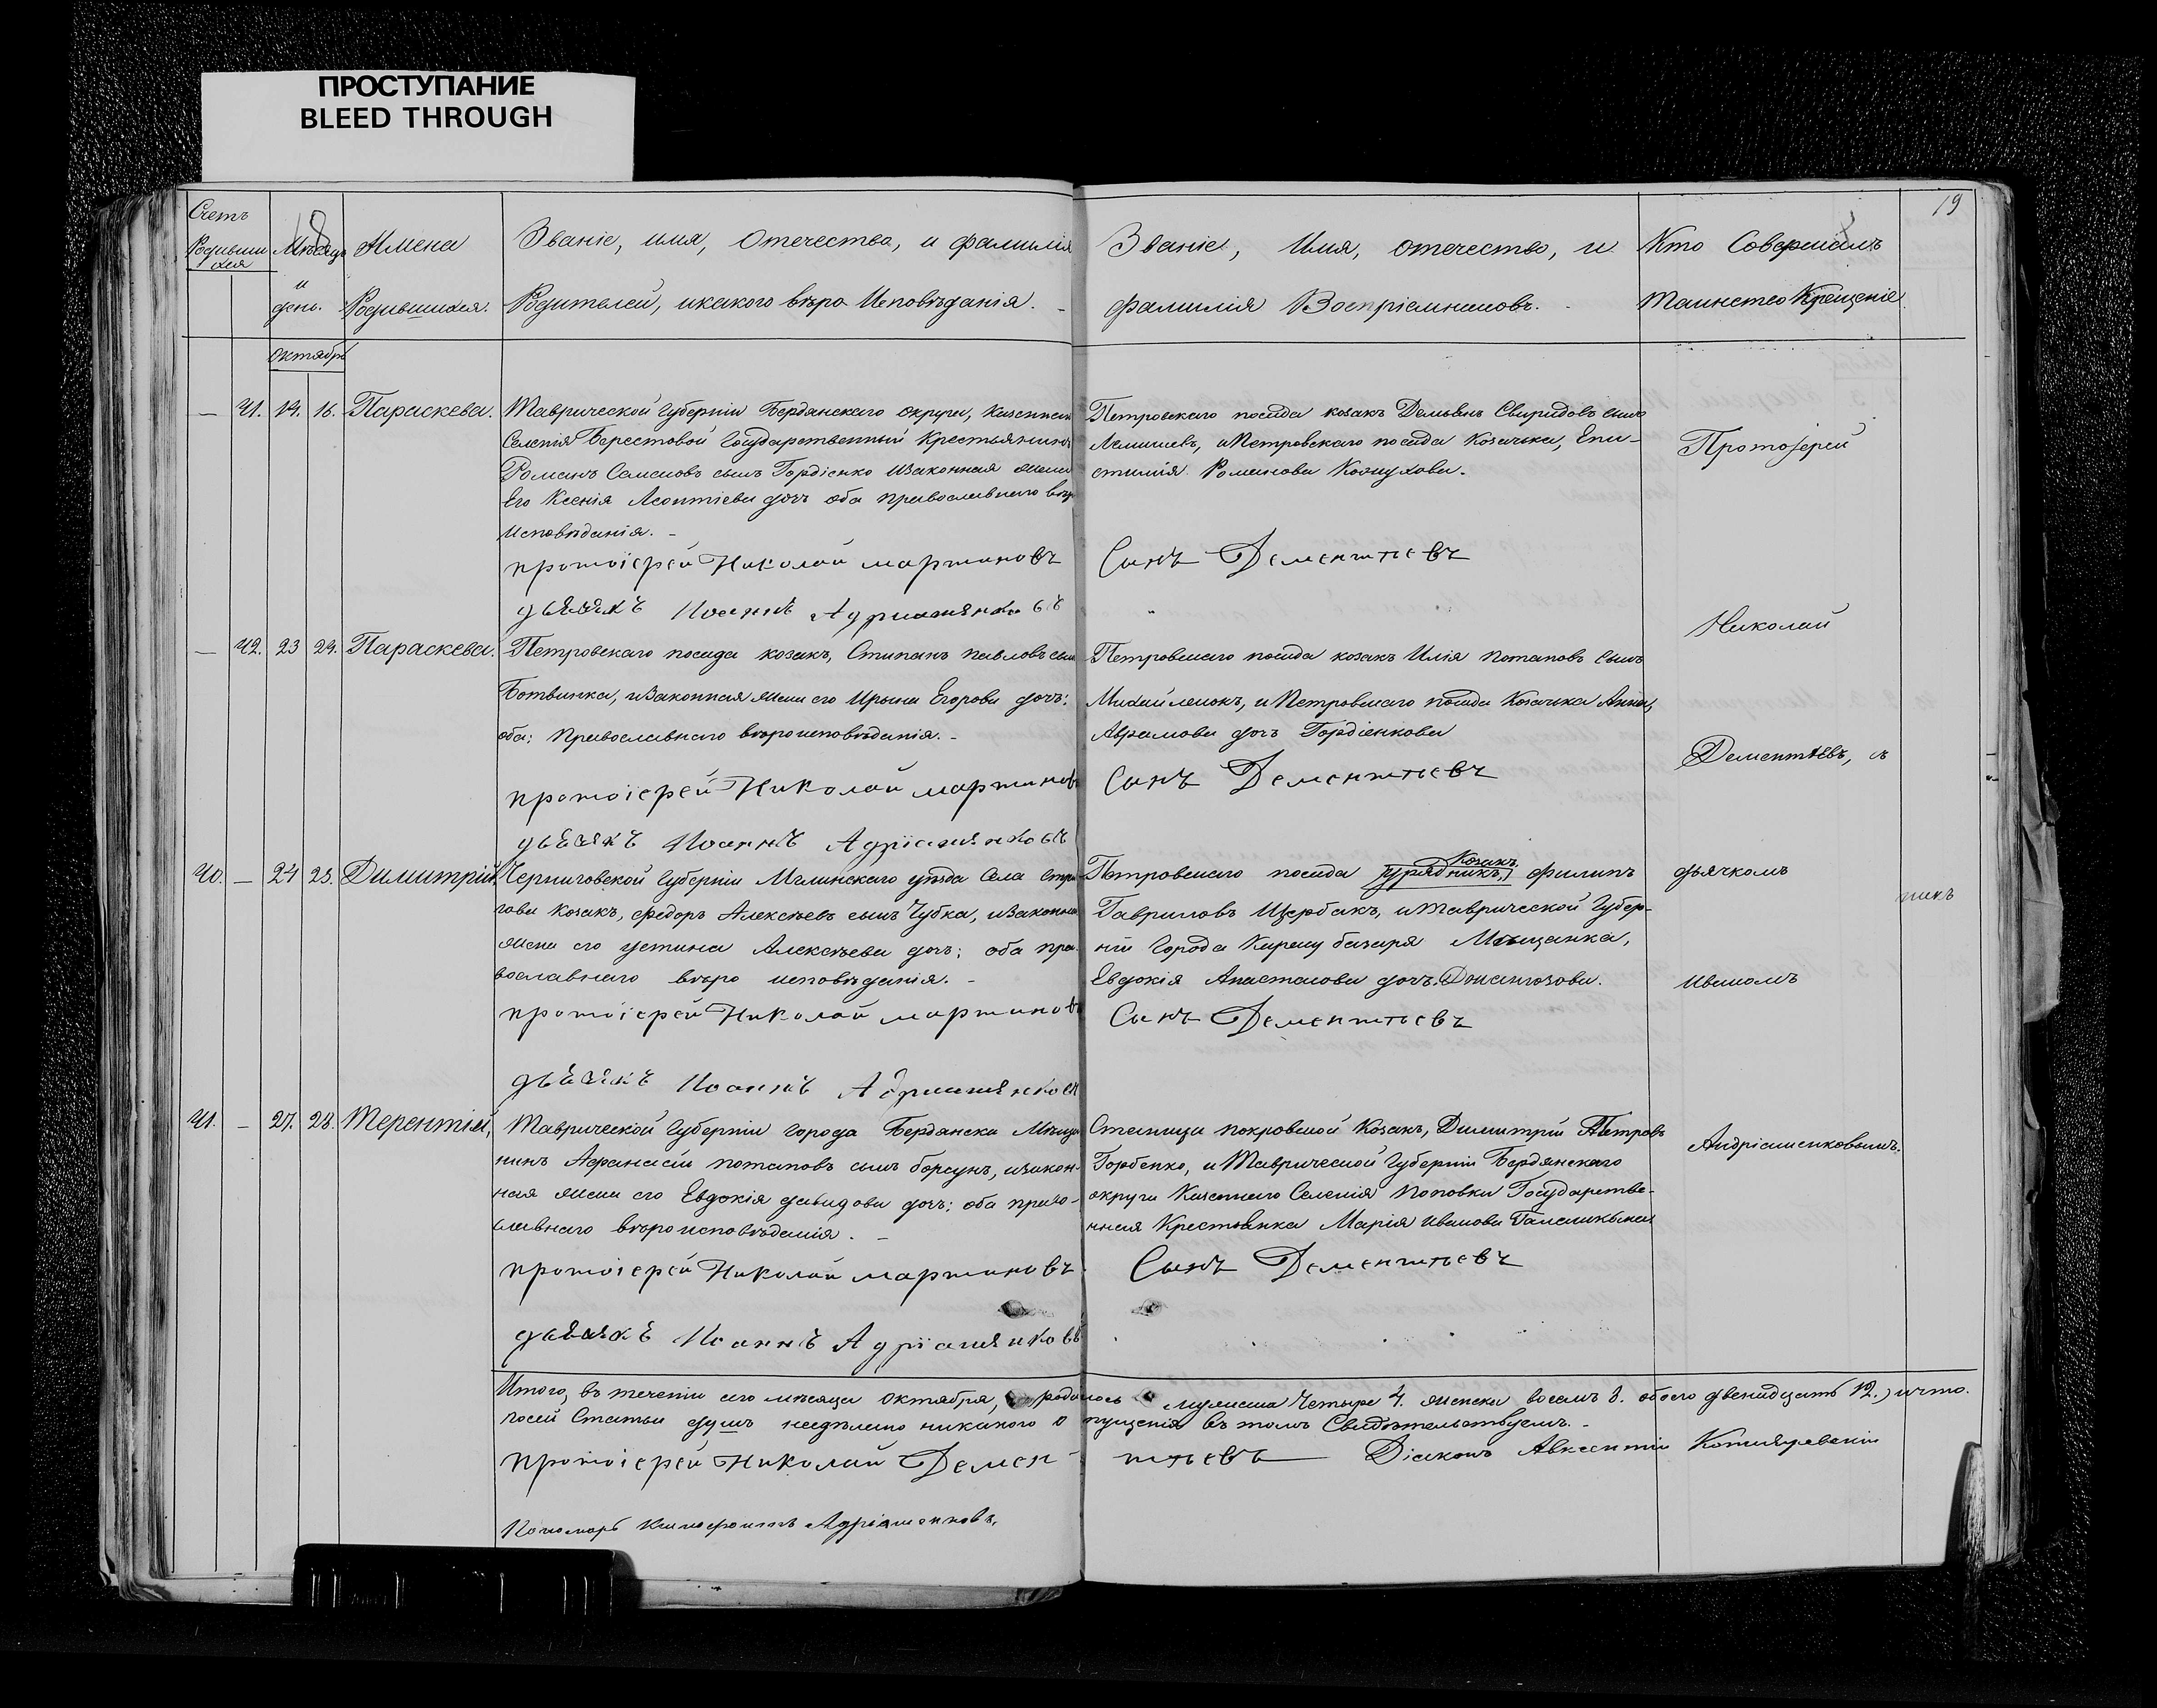 ПРОСТУПАНИЕ
BLEED THROUGH
19
Счетъ
Родивши
хся
Мѣсяцъ
и
день.
Имена
Родившихся.
Званіе, имя, Отечество, и фамилія
Родителей, и какого вѣро Исповѣданія.
Званіе, Имя, отечество, и
фамилія Воспріемниковъ.
Кто Совершалъ
Таинство Крещеніе
октябрь
— 41. 14. 16. Параскева.
Таврической Губерніи Бердянскаго округи, казеннаго
Селенія Берестовой Государственный Крестьянинъ
Романъ Семеновъ сынъ Гордіенко и законная жена
Его Ксенія Леонтіева дочь оба православнаго вѣро
Исповѣданія. -
протоіерей Николай мартиновъ
дьячокъ Иоаннъ Адриашенковъ
Петровскаго посада козакъ Демьянъ Свиридовъ сынъ
Лемишевъ, и Петровскаго посада Козачка, Епи-
стимія Романова Кожухова.
Сынъ Дементьевъ
Протоіерей
Николай
— 42. 23 24. Параскева.
Петровскаго посада козакъ, Стипанъ павловъ сынъ
Ботвинка, и законная жена его Ирина Егорова дочь:
оба: Православнаго вѣроисповѣданія. -
протоіерей Николай мартиновъ
дьячокъ Иоаннъ Адріашенковъ
Петровскаго посада козакъ Илія Потаповъ Сынъ
Михайленокъ, и Петровскаго посада Козачка Анна,
Аврамова дочь Гордіенкова
Сынъ Дементьевъ
Дементьевъ, съ
40. — 24 25. Димитрій,
Черниговской Губерніи Мглинскаго уѣзда Села
гова козакъ, Федоръ Алексѣевъ сынъ Чубка, и законная
жена его устина Алексѣева дочь; оба пра-
вославнаго вѣро исповѣданія. -
протоіерей Николай мартиновъ
дьячокъ Иоаннъ Адриашенковъ
Козакъ,
Петровскаго посада урядникъ, филипъ
Гавриловъ Щербакъ, и Таврической Губер-
ніи Города Карасу базара Мѣщанка,
Евдокія Анастасова дочь
Сынъ Дементьевъ
дьячкомъ
никъ
Иваномъ
41. — 27. 28. Терентій,
Таврической Губерніи города Бердянска Мѣща
нинъ Афанасій потаповъ сынъ борсунъ, и закон-
ная жена его Евдокія давидова дочь: оба право-
славнаго вѣроисповѣданія. -
протоіерей Николай мартиновъ
дьячокъ Иоаннъ Адріашенковъ
Станицы покровской Козакъ, Димитрій Петровъ
Горбенко, и Таврической Губерніи Бердянскаго
округи Казеннаго Селенія Поповки Государстве-
нная Крестьянка Марія иванова
Сынъ Дементьевъ
Андріашенковымъ.
Итого, въ теченіи сего мѣсяца Октября, родилось мужеска Четыре 4. женска восемъ 8. обоего двенадцать 12.) и что.
посей Статьи душъ несдѣлано никакого опущенія въ томъ Свидѣтельствуемъ. -
протоіерей Николай Дементьевъ Діаконъ Авксентій Котляревскій
Пономарь Ксенофонтъ Адріашенковъ,